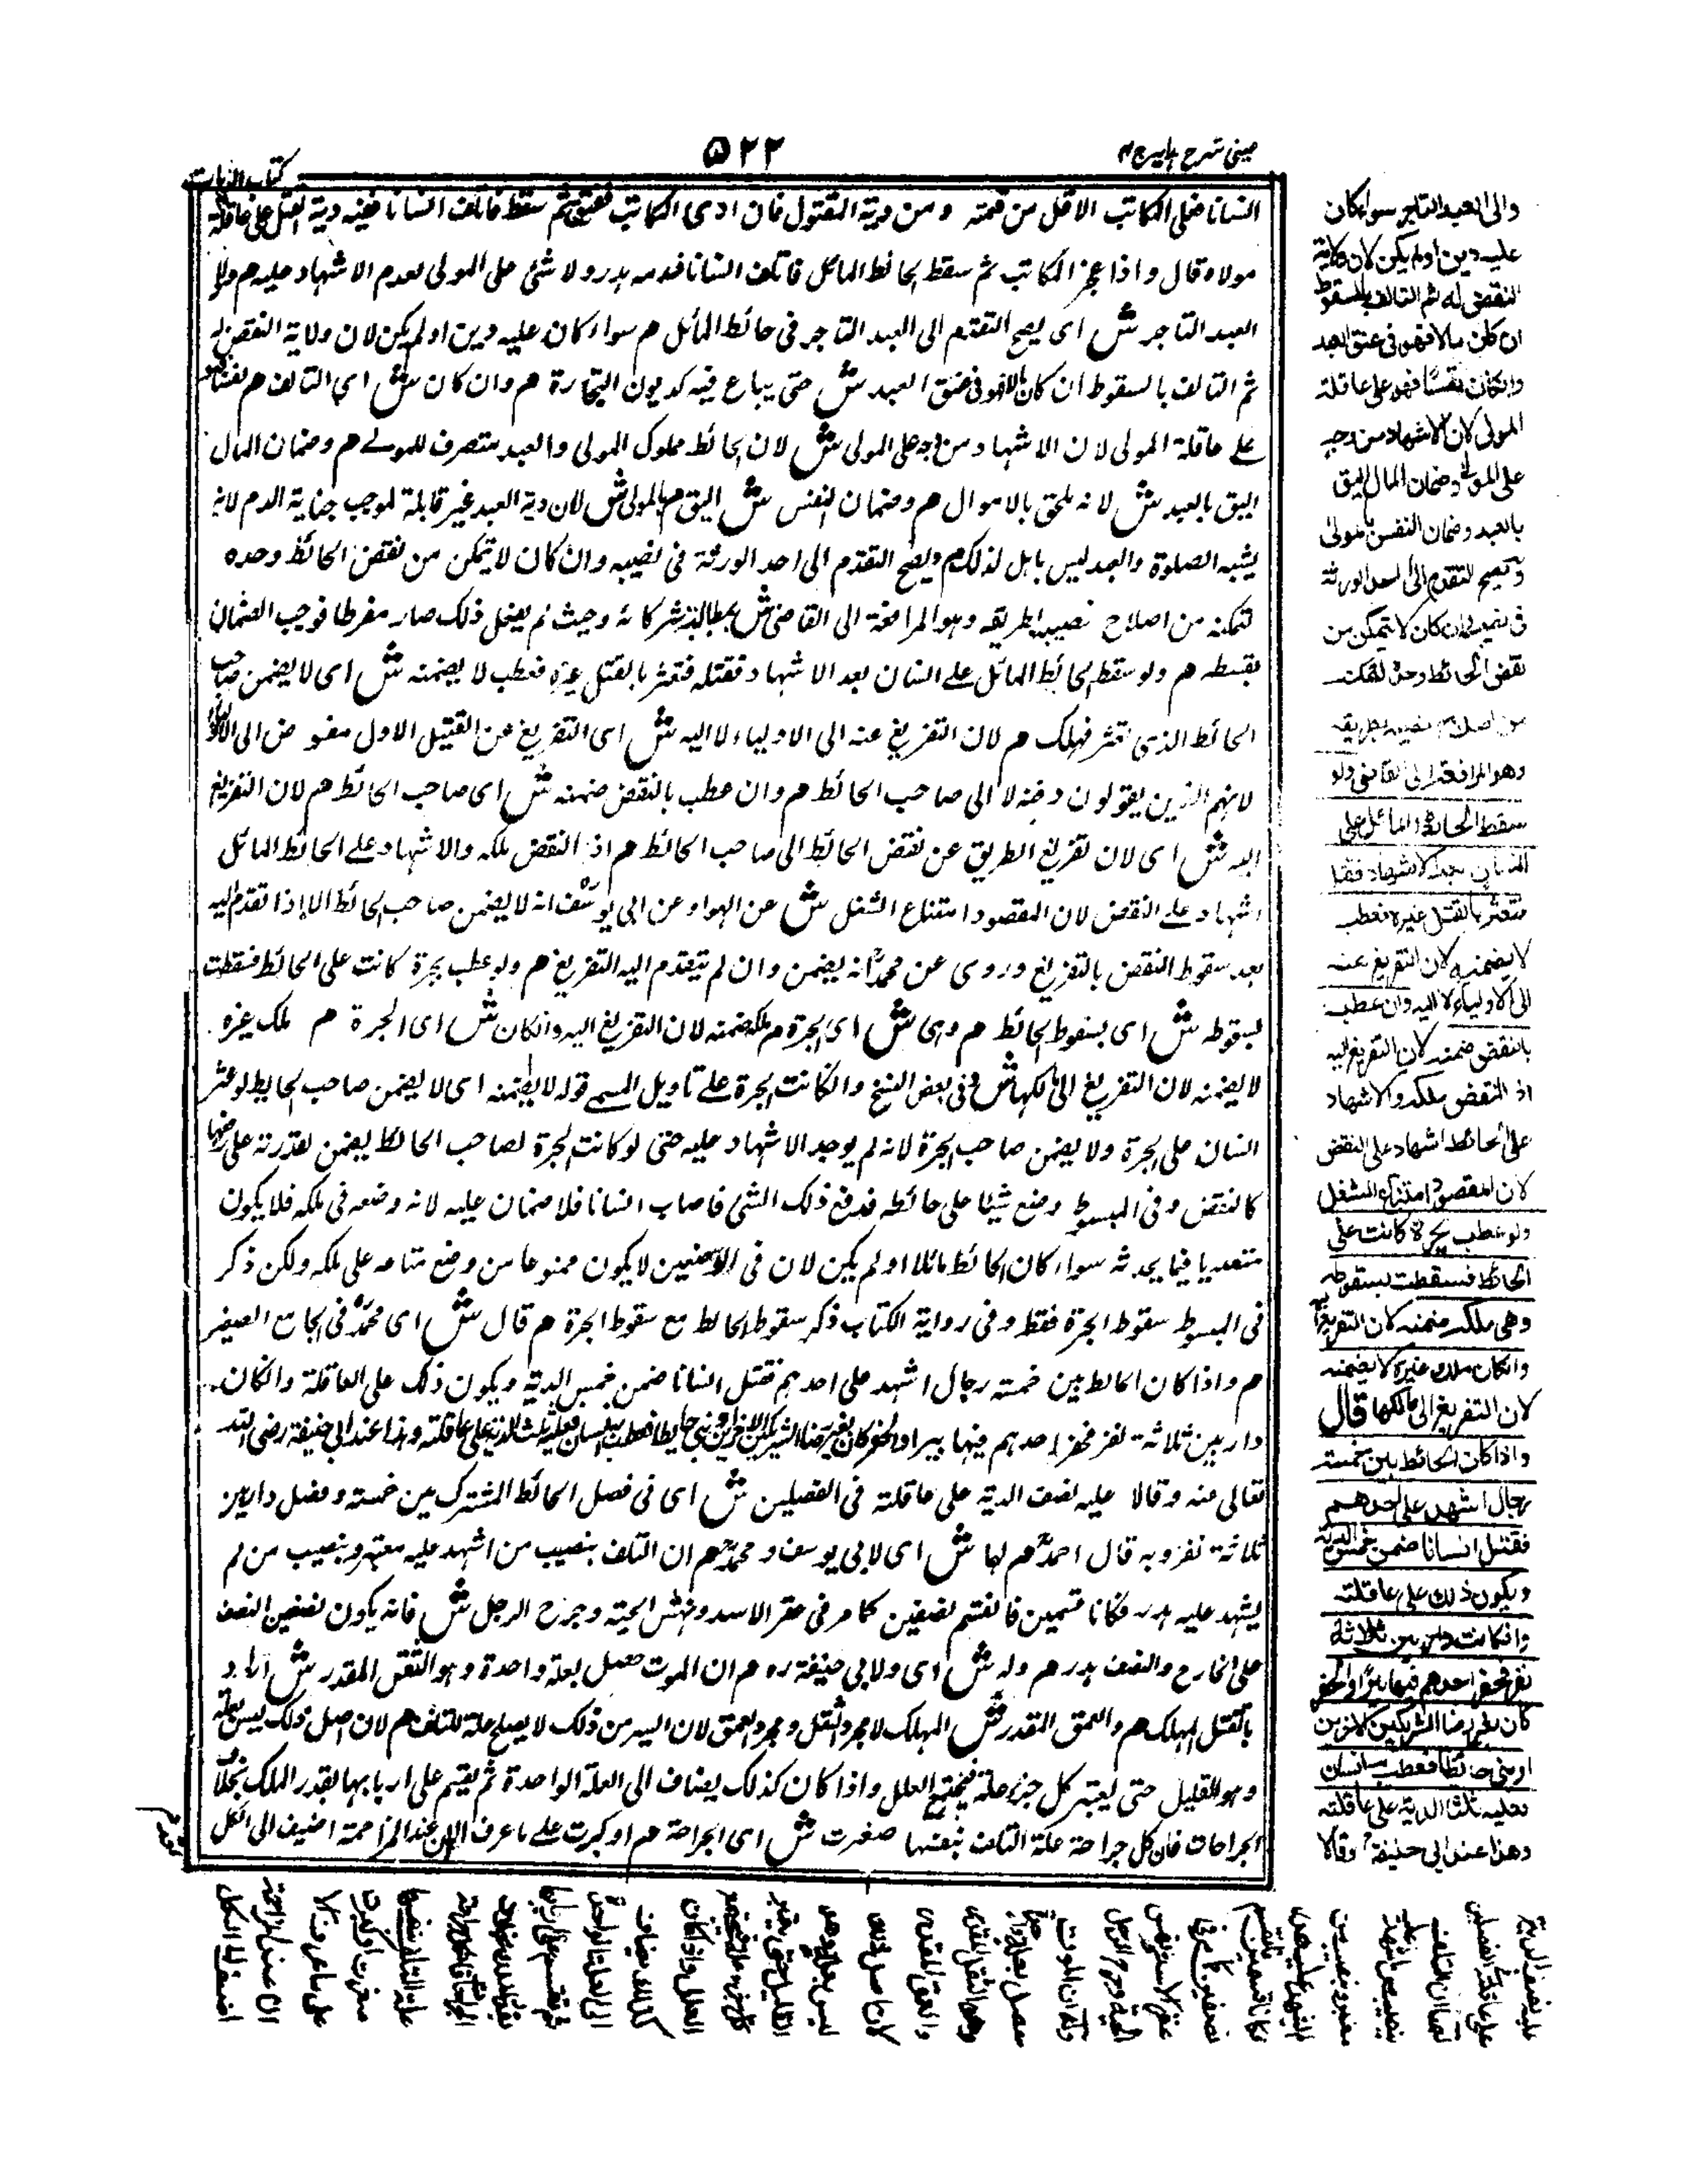 عینی شرح ہدایہ ج ۴
۵۲۲
کتاب الدیات
انسانا فعلی المکاتب الاقل من قیمتہ ومن دیۃ المقتول فان ادی المکاتب فعتق ثم سقط فاتلف انسانا ففیہ دیۃ القتل علی عاقلۃ
مولاہ قال واذا عجز المکاتب ثم سقط الحائط المائل فاتلف انسانا فدمہ ہدر ولا شئ علی المولی لعدم الاشہاد علیہ م والی
العبد التاجر ش ای یصح التقدم الی العبد التاجر فی حائط المائل م سواء کان علیہ دین او لم یکن لان ولایۃ النقض لہ
ثم التالف بالسقوط ان کان مالا فہو فی عنق العبد ش حتی یباع فیہ کدیون التجارۃ م وان کان ش ای التالف م نفسا فہو
علے عاقلۃ المولی لان الاشہاد من وجہ علی المولی ش لان الحائط مملوک المولی والعبد متصرف للمولے م وضمان المال
الیق بالعبد ش لانہ یلحق بالاموال م وضمان النفس ش الیق م بالمولی ش لان دیۃ العبد غیر قابلۃ لموجب جنایۃ الدم لانہ
یشبہ الصلوۃ والعبد لیس باہل لذلک م ویصح التقدم الی احد الورثۃ فی نصیبہ وان کان لا یتمکن من نقض الحائط وحدہ
لتمکنہ من اصلاح نصیبہ بطریقہ وہو المرافعۃ الی القاضی ش بمطالبۃ شرکائہ وحیث لم یفعل ذلک صار مفرطا فوجب الضمان
بقسطہ م ولو سقط الحائط المائل علے انسان بعد الاشہاد فقتلہ فتعثر بالقتیل غیرہ فعطب لا یضمنہ ش ای لا یضمن صاحب
الحائط الذی تعثر فہلک م لان التفریغ عنہ الی الاولیاء لا الیہ ش ای التفریغ عن القتیل الاول مفوض الی الاولیاء
لانہم الذین یتولون دفنہ لا الی صاحب الحائط م وان عطب بالنقض ضمنہ ش ای صاحب الحائط م لان التفریغ
الیہ ش ای لان تفریغ الطریق عن نقض الحائط الی صاحب الحائط م اذ النقض ملکہ والاشہاد علے الحائط المائل
اشہاد علے النقض لان المقصود امتناع الشغل ش عن الہواء وعن ابی یوسف انہ لا یضمن صاحب الحائط الا اذا تقدم الیہ
بعد سقوط النقض بالتفریغ وروی عن محمد انہ یضمن وان لم یتقدم الیہ التفریغ م ولو عطب بجرۃ کانت علی الحائط فسقطت
بسقوطہ ش ای بسقوط الحائط م وہی ش ای الجرۃ م ملکہ ضمنہ لان التفریغ الیہ وانکان ش ای الجرۃ م ملک غیرہ
لا یضمنہ لان التفریغ الی مالکہا ش وفی بعض النسخ وان کانت الجرۃ علے تاویل المسمے قولہ لا یضمنہ ای لا یضمن صاحب الحایط لو عثر
انسان علی الجرۃ ولا یضمن صاحب الجرۃ لانہ لم یوجد الاشہاد علیہ حتی لو کانت الجرۃ لصاحب الحائط یضمن لقدرتہ علی رفعہا
کالنقض وفی المبسوط وضع شیئا علی حائطہ فدفع ذلک الشئ فاصاب انسانا فلا ضمان علیہ لانہ وضعہ فی ملکہ فلا یکون
متعدیا فیما یحدثہ سواء کان الحائط مائلا او لم یکن لان فی الوضعین لا یکون ممنوعا من وضع متاعہ علی ملکہ ولکن ذکر
فی المبسوط سقوط الجرۃ فقط وفی روایۃ الکتاب ذکر سقوط الحائط مع سقوط الجرۃ م قال ش ای محمد فی الجامع الصغیر
م واذا کان الحائط بین خمسۃ رجال اشہد علی احدہم فقتل انسانا ضمن خمس الدیۃ ویکون ذلک علی العاقلۃ وانکان
دار بین ثلاثۃ نفر فحفر احدہم فیہا بیرا والحفر کان بغیر رضا الشریکین الاخرین او بنی حایطا فعطب بہ انسان فعلیہ ثلث الدیۃ علی عاقلتہ وہذا عند ابی حنیفۃ رضی اللہ
تعالی عنہ وقالا علیہ نصف الدیۃ علی عاقلتہ فی الفصلین ش ای فی فصل الحائط المشترک بین خمسۃ وفصل دار بین
ثلاثۃ نفر وبہ قال احمد م لہما ش ای لابی یوسف ومحمد م ان التلف بنصیب من اشہد علیہ معتبر وبنصیب من لم
یشہد علیہ ہدر فکانا قسمین فانقسم نصفین کما مر فی عقر الاسد ونہش الحیۃ وجرح الرجل ش فانہ یکون نصفین النصف
علی الجارح والنصف ہدر م ولہ ش ای ولابی حنیفۃ رہ م ان الموت حصل بعلۃ واحدۃ وہو الثقل المقدر ش اراد
بالثقل المہلک م والعمق المقدر ش المہلک لا مجرد الثقل ومجرد العمق لان الیسیر من ذلک لا یصلح علۃ للتلف م لان اصل ذلک لیس بعلۃ
وہو القلیل حتی یعتبر کل جزء علۃ فیجتمع العلل واذا کان کذلک یضاف الی العلۃ الواحدۃ ثم یقسم علی اربابہا بقدر الملک بخلاف
الجراحات فان کل جراحۃ علۃ التلف بنفسہا صغرت ش ای الجراحۃ م او کبرت علے ما عرف الا ان عند المزاحمۃ اضیف الی الکل
والی العبد التاجر سواء کان
علیہ دین او لم یکن لان ولایۃ
النقض لہ ثم التالف بالسقوط
ان کان مالا فہو فی عنق العبد
وانکان نفسا فہو علی عاقلۃ
المولی لان الاشہاد من وجہ
علی المولی وضمان المال الیق
بالعبد وضمان النفس بالمولی
ویصح التقدم الی احد الورثۃ
فی نصیبہ وان کان لا یتمکن من
نقض الحائط وحدہ لتمکنہ
من اصلاح نصیبہ بطریقہ
وہو المرافعۃ الی القاضی ولو
سقط الحائط المائل علی
انسان بعد الاشہاد فقتلہ
فتعثر بالقتیل غیرہ فعطب
لا یضمنہ لان التفریغ عنہ
الی الاولیاء لا الیہ وان عطب
بالنقض ضمنہ لان التفریغ الیہ
اذ النقض ملکہ والاشہاد
علی الحائط اشہاد علی النقض
لان المقصود امتناع الشغل
ولو عطب بجرۃ کانت علی
الحائط فسقطت بسقوطہ
وهی ملکہ ضمنہ لان التفریغ الیہ
وانکان ملک غیرہ لا یضمنہ
لان التفریغ الی مالکها قال
واذا کان الحائط بین خمسۃ
رجال اشهد علی احدهم
فقتل انسانا ضمن خمس الدیۃ
ویکون ذلک علی عاقلتہ
وانکانت دار بین ثلاثۃ
نفر فحفر احدهم فیها بئرا والحفر
کان بغیر رضا الشریکین الاخرین
او بنی حائطا فعطب بہ انسان
فعلیہ ثلث الدیۃ علی عاقلتہ
وهذا عند ابی حنیفۃ وقالا
علیہ نصف الدیۃ
علی عاقلتہ فی الفصلین
لهما ان التلف
بنصیب من اشهد علیہ
معتبر وبنصیب من
لم یشهد علیہ هدر
فکانا قسمین فانقسم
نصفین کما مر فی
عقر الاسد ونهش
الحیۃ وجرح الرجل
ولہ ان الموت
حصل بعلۃ واحدۃ
وهو الثقل المقدر
والعمق المقدر
لان اصل ذلک
لیس بعلۃ وهو
القلیل حتی یعتبر
کل جزء علۃ فیجتمع
العلل واذا کان
کذلک یضاف
الی العلۃ الواحدۃ
ثم یقسم علی اربابها
بقدر الملک بخلاف
الجراحات فان کل جراحۃ
علۃ التلف بنفسها
صغرت او کبرت
علی ما عرف الا
ان عند المزاحمۃ
اضیف الی الکل